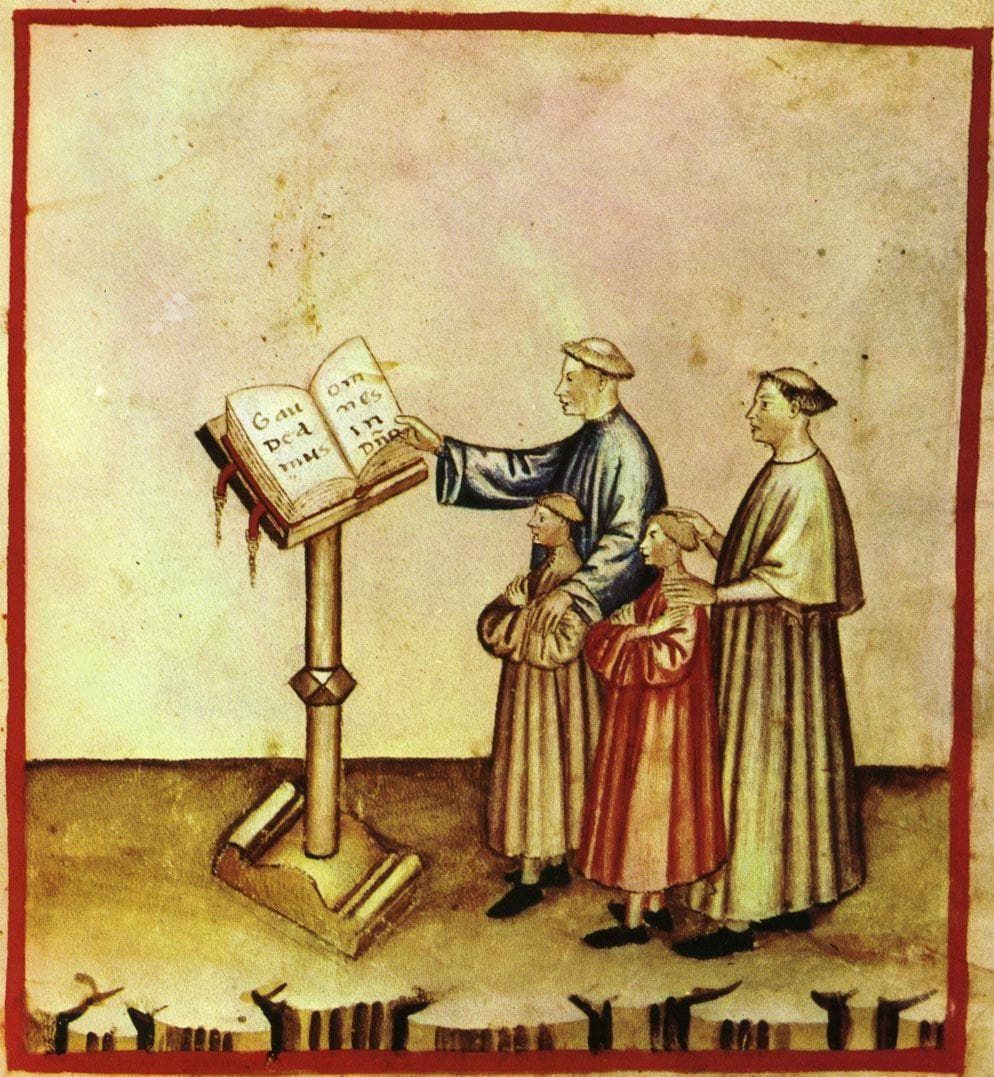 Gau
dea
mus
om
nes
in
dño